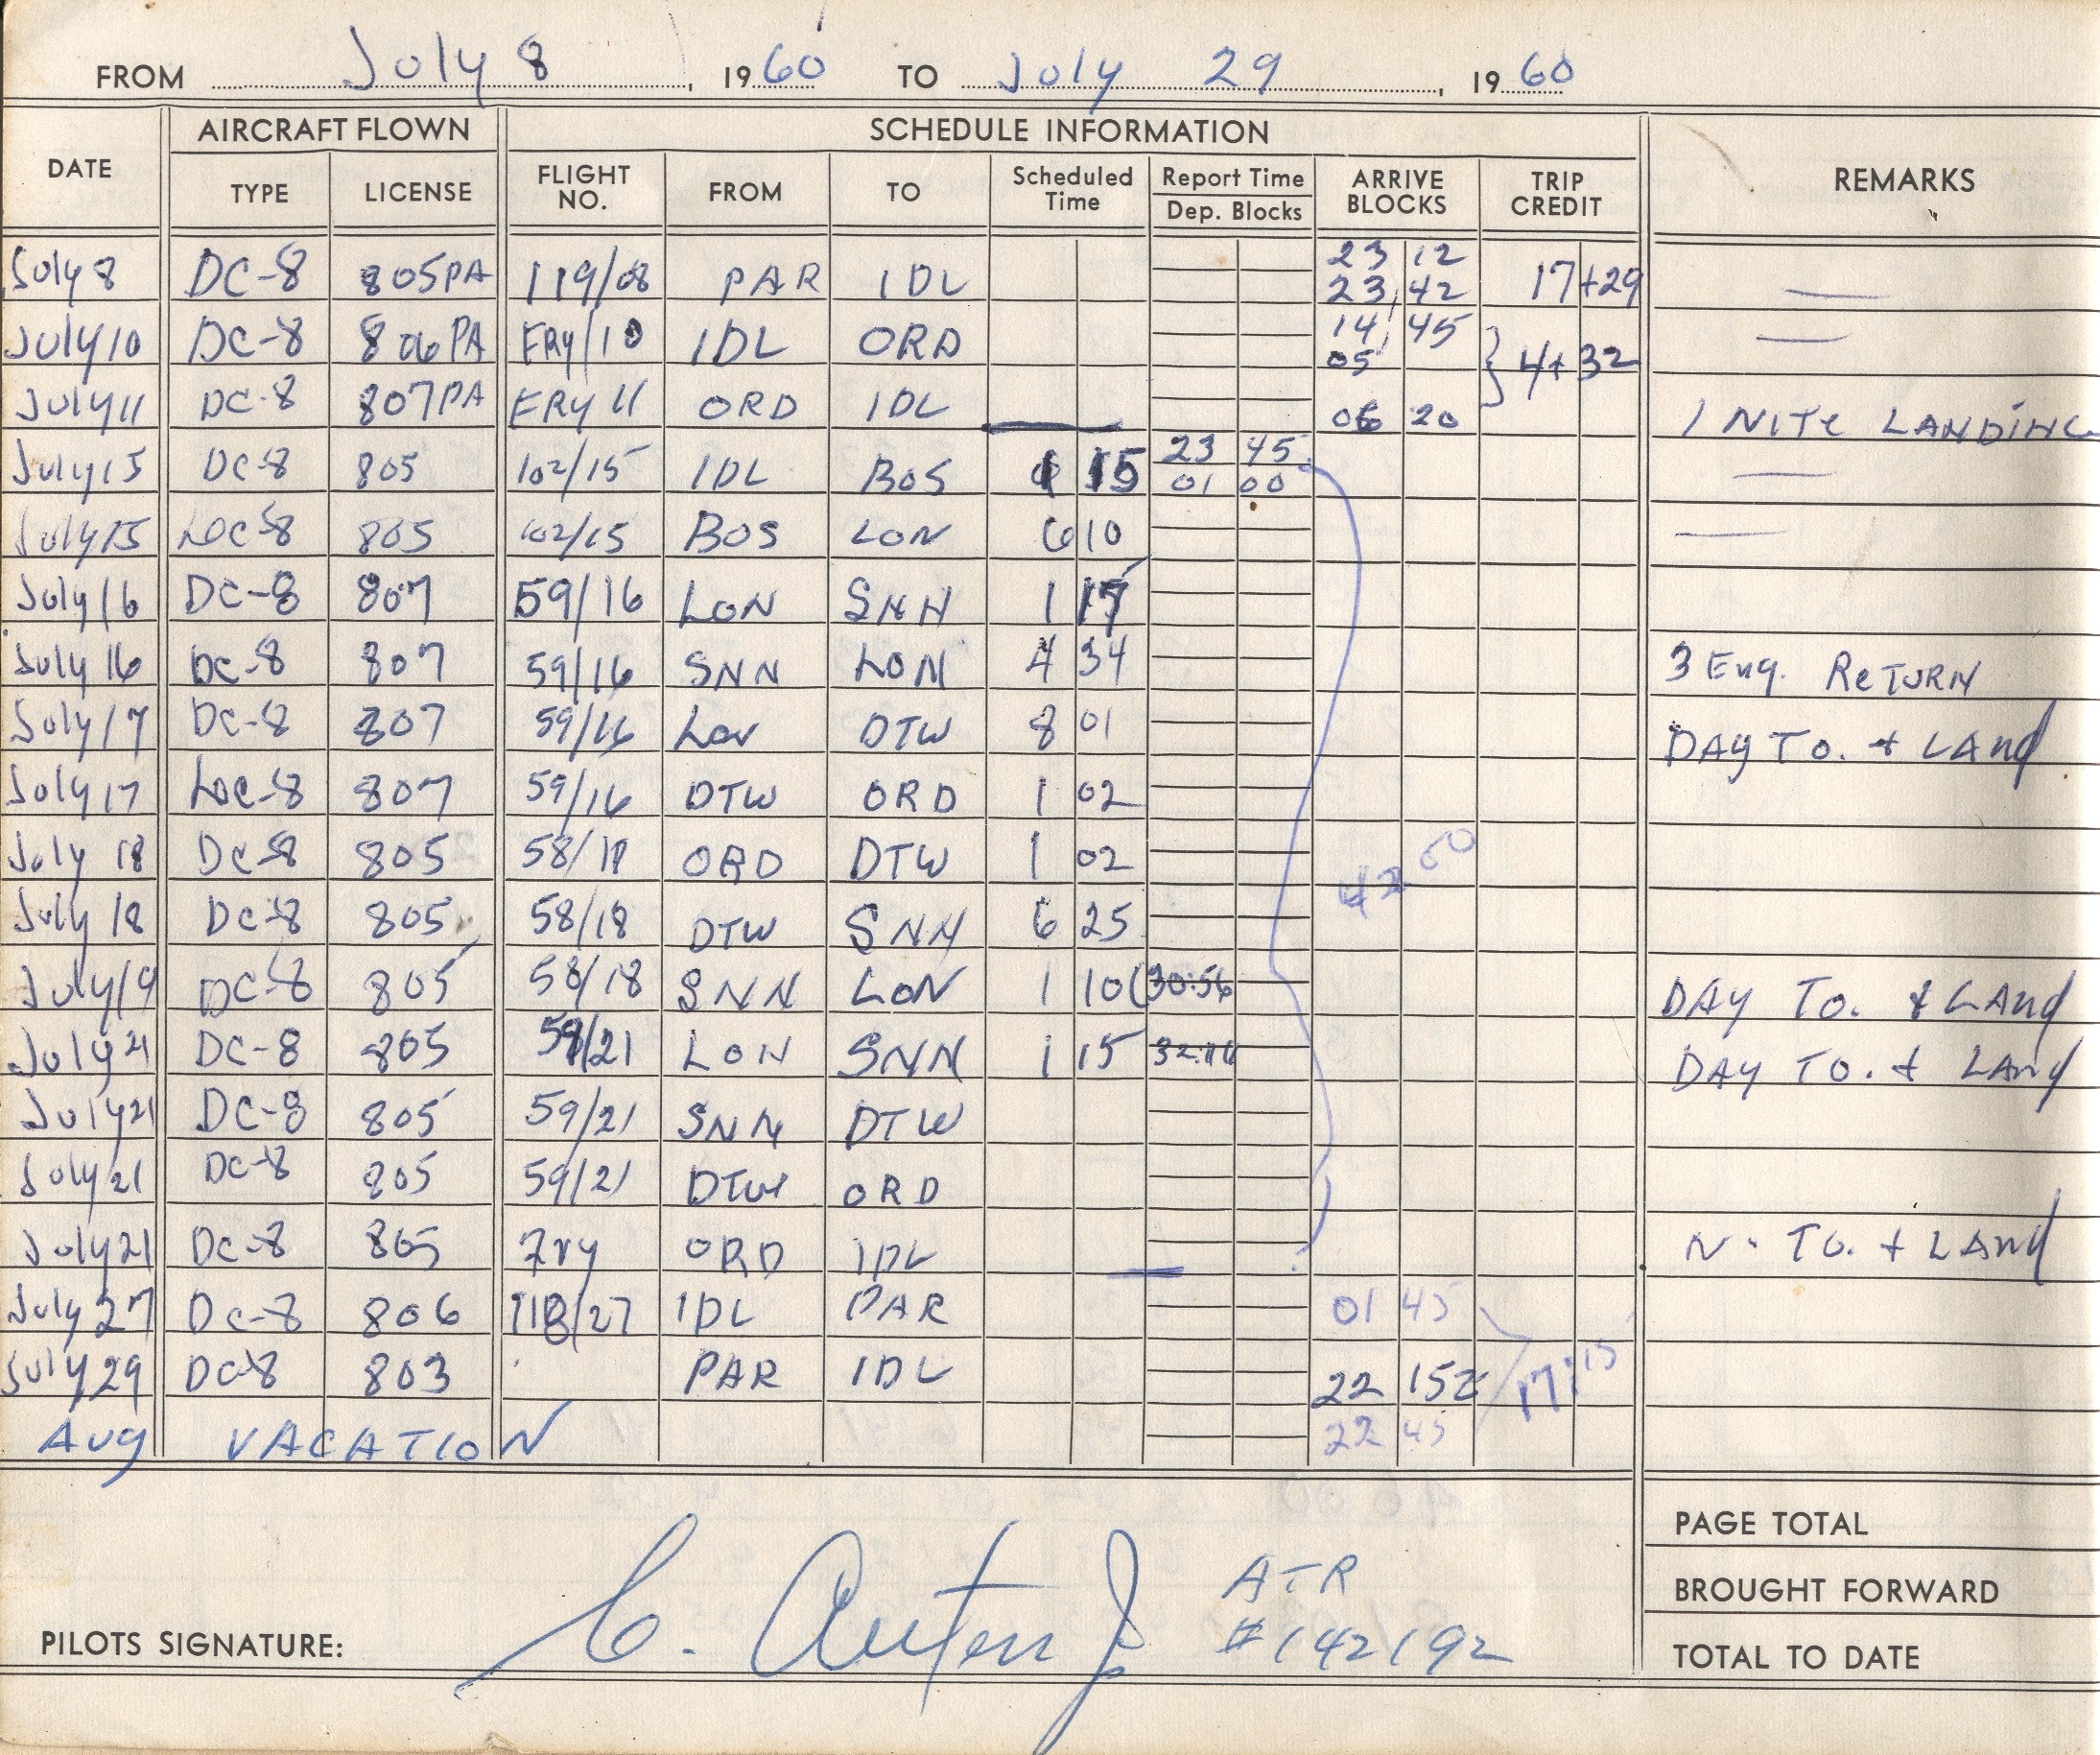 FROM July 8, 1960 TO July 29, 1960
AIRCRAFT FLOWN SCHEDULE INFORMATION
DATE TYPE LICENSE FLIGHT NO. FROM TO Scheduled Time Report Time Dep. Blocks ARRIVE BLOCKS TRIP CREDIT REMARKS
23 12
July 8 DC-8 805PA 119/08 PAR IDL 23 42 17+29 —
14 45
July 10 DC-8 806PA FRY/10 IDL ORD 05 4+32 —
July 11 DC-8 807PA FRY 11 ORD IDL 06 20 1 NITE LANDING
23 45
July 15 DC-8 805 102/15 IDL BOS 1 15 01 00 —
July 15 DC-8 805 102/15 BOS LON 6 10 —
July 16 DC-8 807 59/16 LON SNN 1 15
July 16 DC-8 807 59/16 SNN LON 4 34 3 Eng. RETURN
July 17 DC-8 807 59/16 LON DTW 8 01 DAY TO. + LAnd
July 17 DC-8 807 59/16 DTW ORD 1 02
July 18 DC-8 805 58/18 ORD DTW 1 02
July 18 DC-8 805 58/18 DTW SNN 6 25
July 19 DC-8 805 58/18 SNN LON 1 10 (30:56 DAY TO. + LAnd
July 21 DC-8 805 59/21 LON SNN 1 15 DAY TO. + LAnd
July 21 DC-8 805 59/21 SNN DTW
July 21 DC-8 805 59/21 DTW ORD
July 21 DC-8 805 Fry ORD IDL N. TO. + LAnd
July 27 DC-8 806 118/27 IDL PAR 01 45
July 29 DC-8 803 PAR IDL 22 15Z 17:15
Aug VACATION 22 45
PAGE TOTAL
BROUGHT FORWARD
TOTAL TO DATE
PILOTS SIGNATURE: C. Auten Jr ATR
#142192